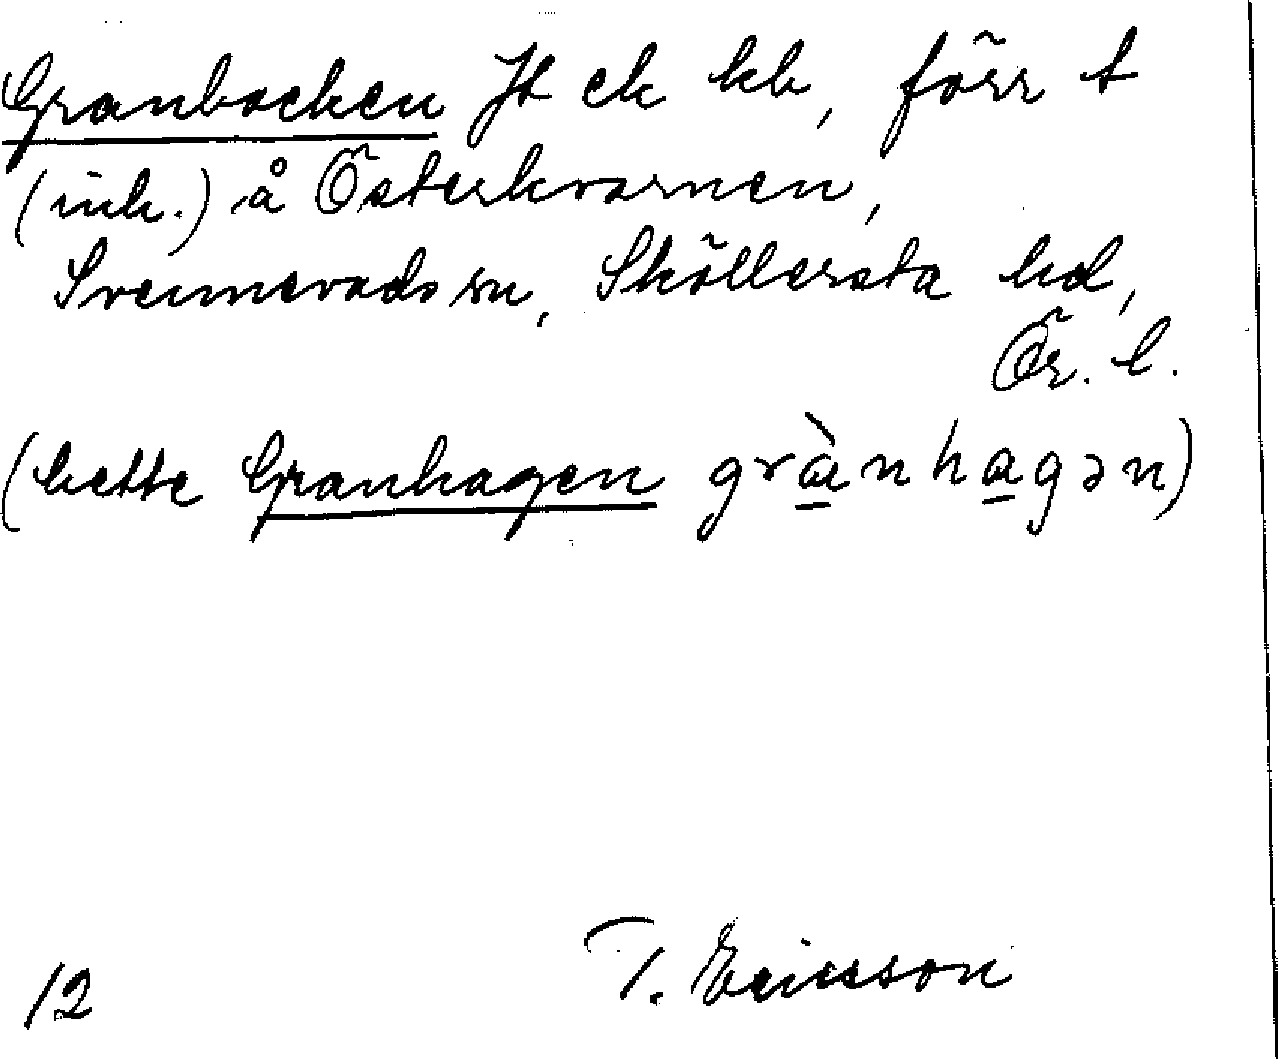 Granbacken Jt ek kb, förr t
(ink.) å Österkvarnen,
Svennevads sn, Sköllersta hd,
Ör. l.
(hette Granhagen grànhagən)
T. Ericsson
12